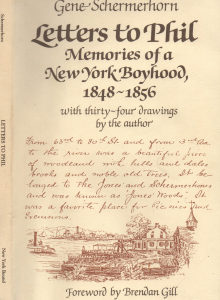 Schermerhorn
LETTERS TO PHIL
New York Bound
Gene Schermerhorn
Letters to Phil
Memories of a
New York Boyhood,
1848-1856
with thirty-four drawings
by the author
From 65th to 80th St and from 3rd Ave
to the river was a beautiful piece
of woodland with hills and dales
brooks and noble old trees. It be
longed to the Jones' and Schermerhorns
and was known as "Jones' Woods". It
was a favorite place for Picnics and
Excursions.
Foreword by Brendan Gill